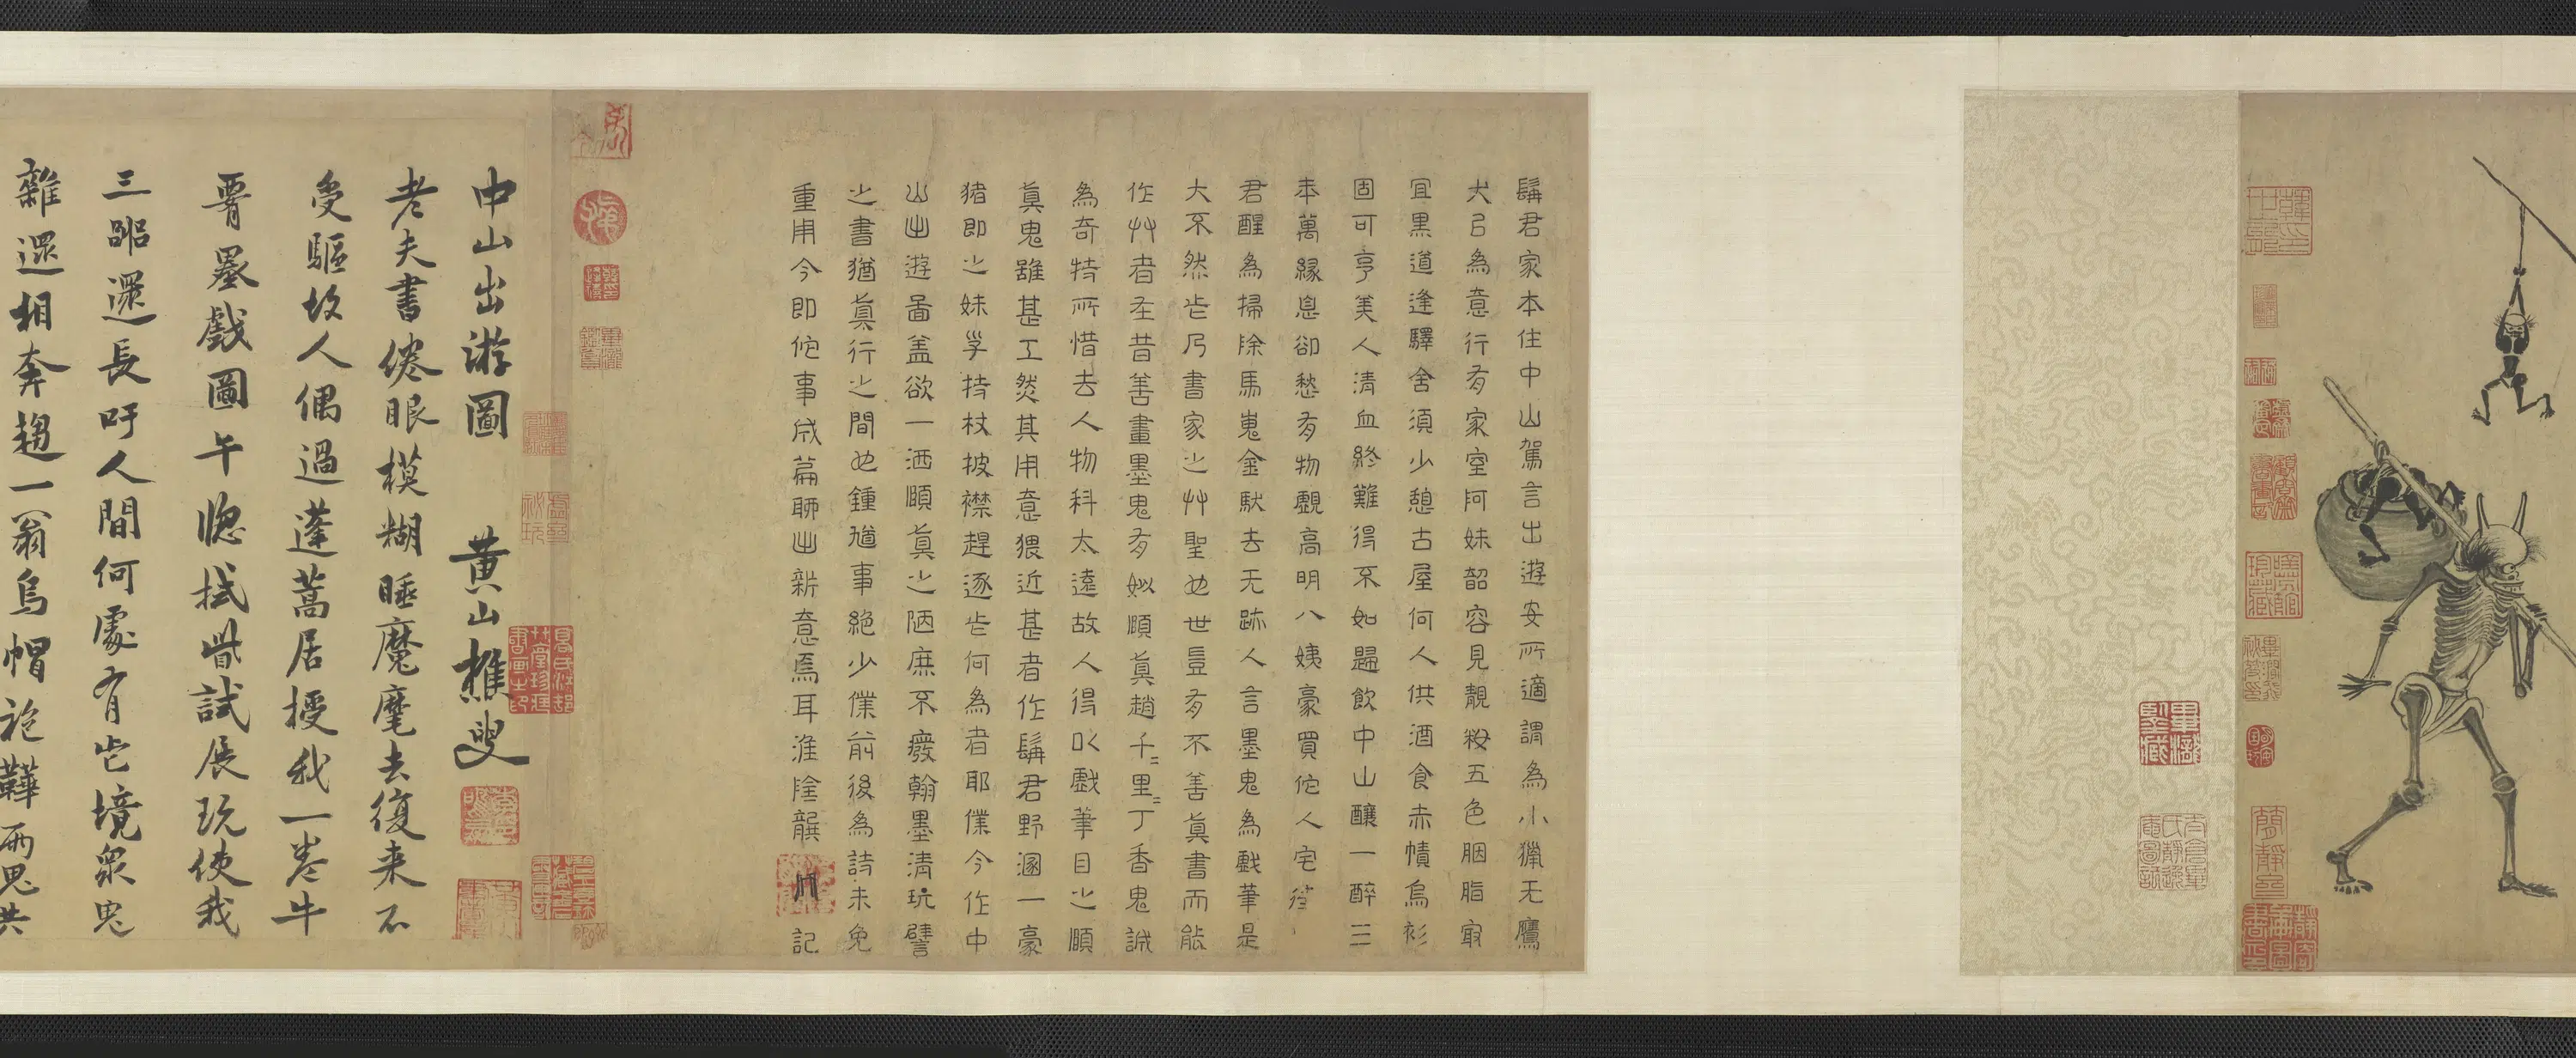 髯君家本住中山駕言出遊安所適謂為小獵无鷹
犬㠯為意行有家室阿妹韶容見靚糚五色胭脂㝡
宜黒道逢驛舍須少憩古屋何人供酒食赤幘烏衫
固可亨美人清血終難得不如歸飲中山釀一醉三
年萬緣息卻愁有物覰高明八姨豪買佗人宅待
君醒為掃除馬嵬金馱去无跡人言墨鬼為戲筆是
大不然此乃書家之艸聖也世豈有不善真書而能
作艸者在昔善畫墨鬼有姒頤真趙千里丁香鬼誠
為奇特所惜去人物科太遠故人得以戲筆目之頤
真鬼雖甚工然其用意猥近甚者作髯君野溷一豪
猪即之妹子持杖披襟趕逐此何為者耶僕今作中
山出遊圖盖欲一洒頤真之陋庶不廢翰墨清玩譬
之書猶真行之間也鍾馗事絶少僕前後為詩未免
重用今即佗事成篇聊出新意焉耳淮陰龔開記
中山出游圖 黄山樵叟
老夫書倦眼模糊睡魔麾去復来不
受驅故人偶過蓬蒿居授我一卷牛
腰墨戲圖午牕拭眥試展玩使我
三還長吁人間何處有此境衆鬼
雜還相奔趨一翁烏帽袍鞾兩鬼共
畢瀧鑑藏